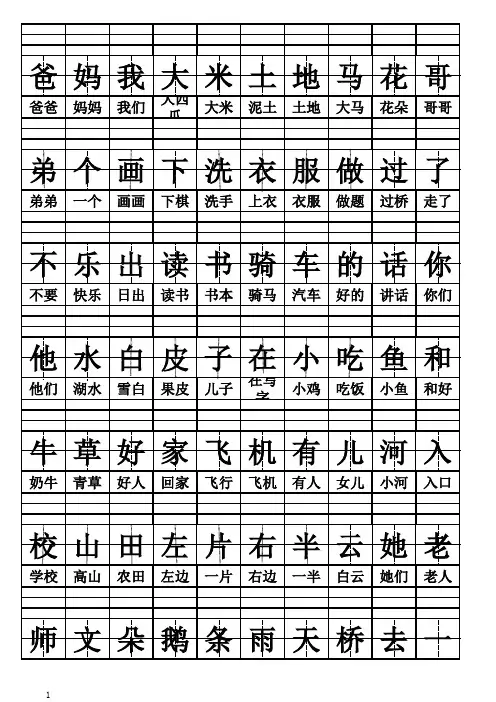 爸 妈 我 大 米 土 地 马 花 哥
爸爸 妈妈 我们 大西瓜 大米 泥土 土地 大马 花朵 哥哥
弟 个 画 下 洗 衣 服 做 过 了
弟弟 一个 画画 下棋 洗手 上衣 衣服 做题 过桥 走了
不 乐 出 读 书 骑 车 的 话 你
不要 快乐 日出 读书 书本 骑马 汽车 好的 讲话 你们
他 水 白 皮 子 在 小 吃 鱼 和
他们 湖水 雪白 果皮 儿子 在写字 小鸡 吃饭 小鱼 和好
牛 草 好 家 飞 机 有 儿 河 入
奶牛 青草 好人 回家 飞行 飞机 有人 女儿 小河 入口
校 山 田 左 片 右 半 云 她 老
学校 高山 农田 左边 一片 右边 一半 白云 她们 老人
师 文 朵 鹅 条 雨 天 桥 去 一
1